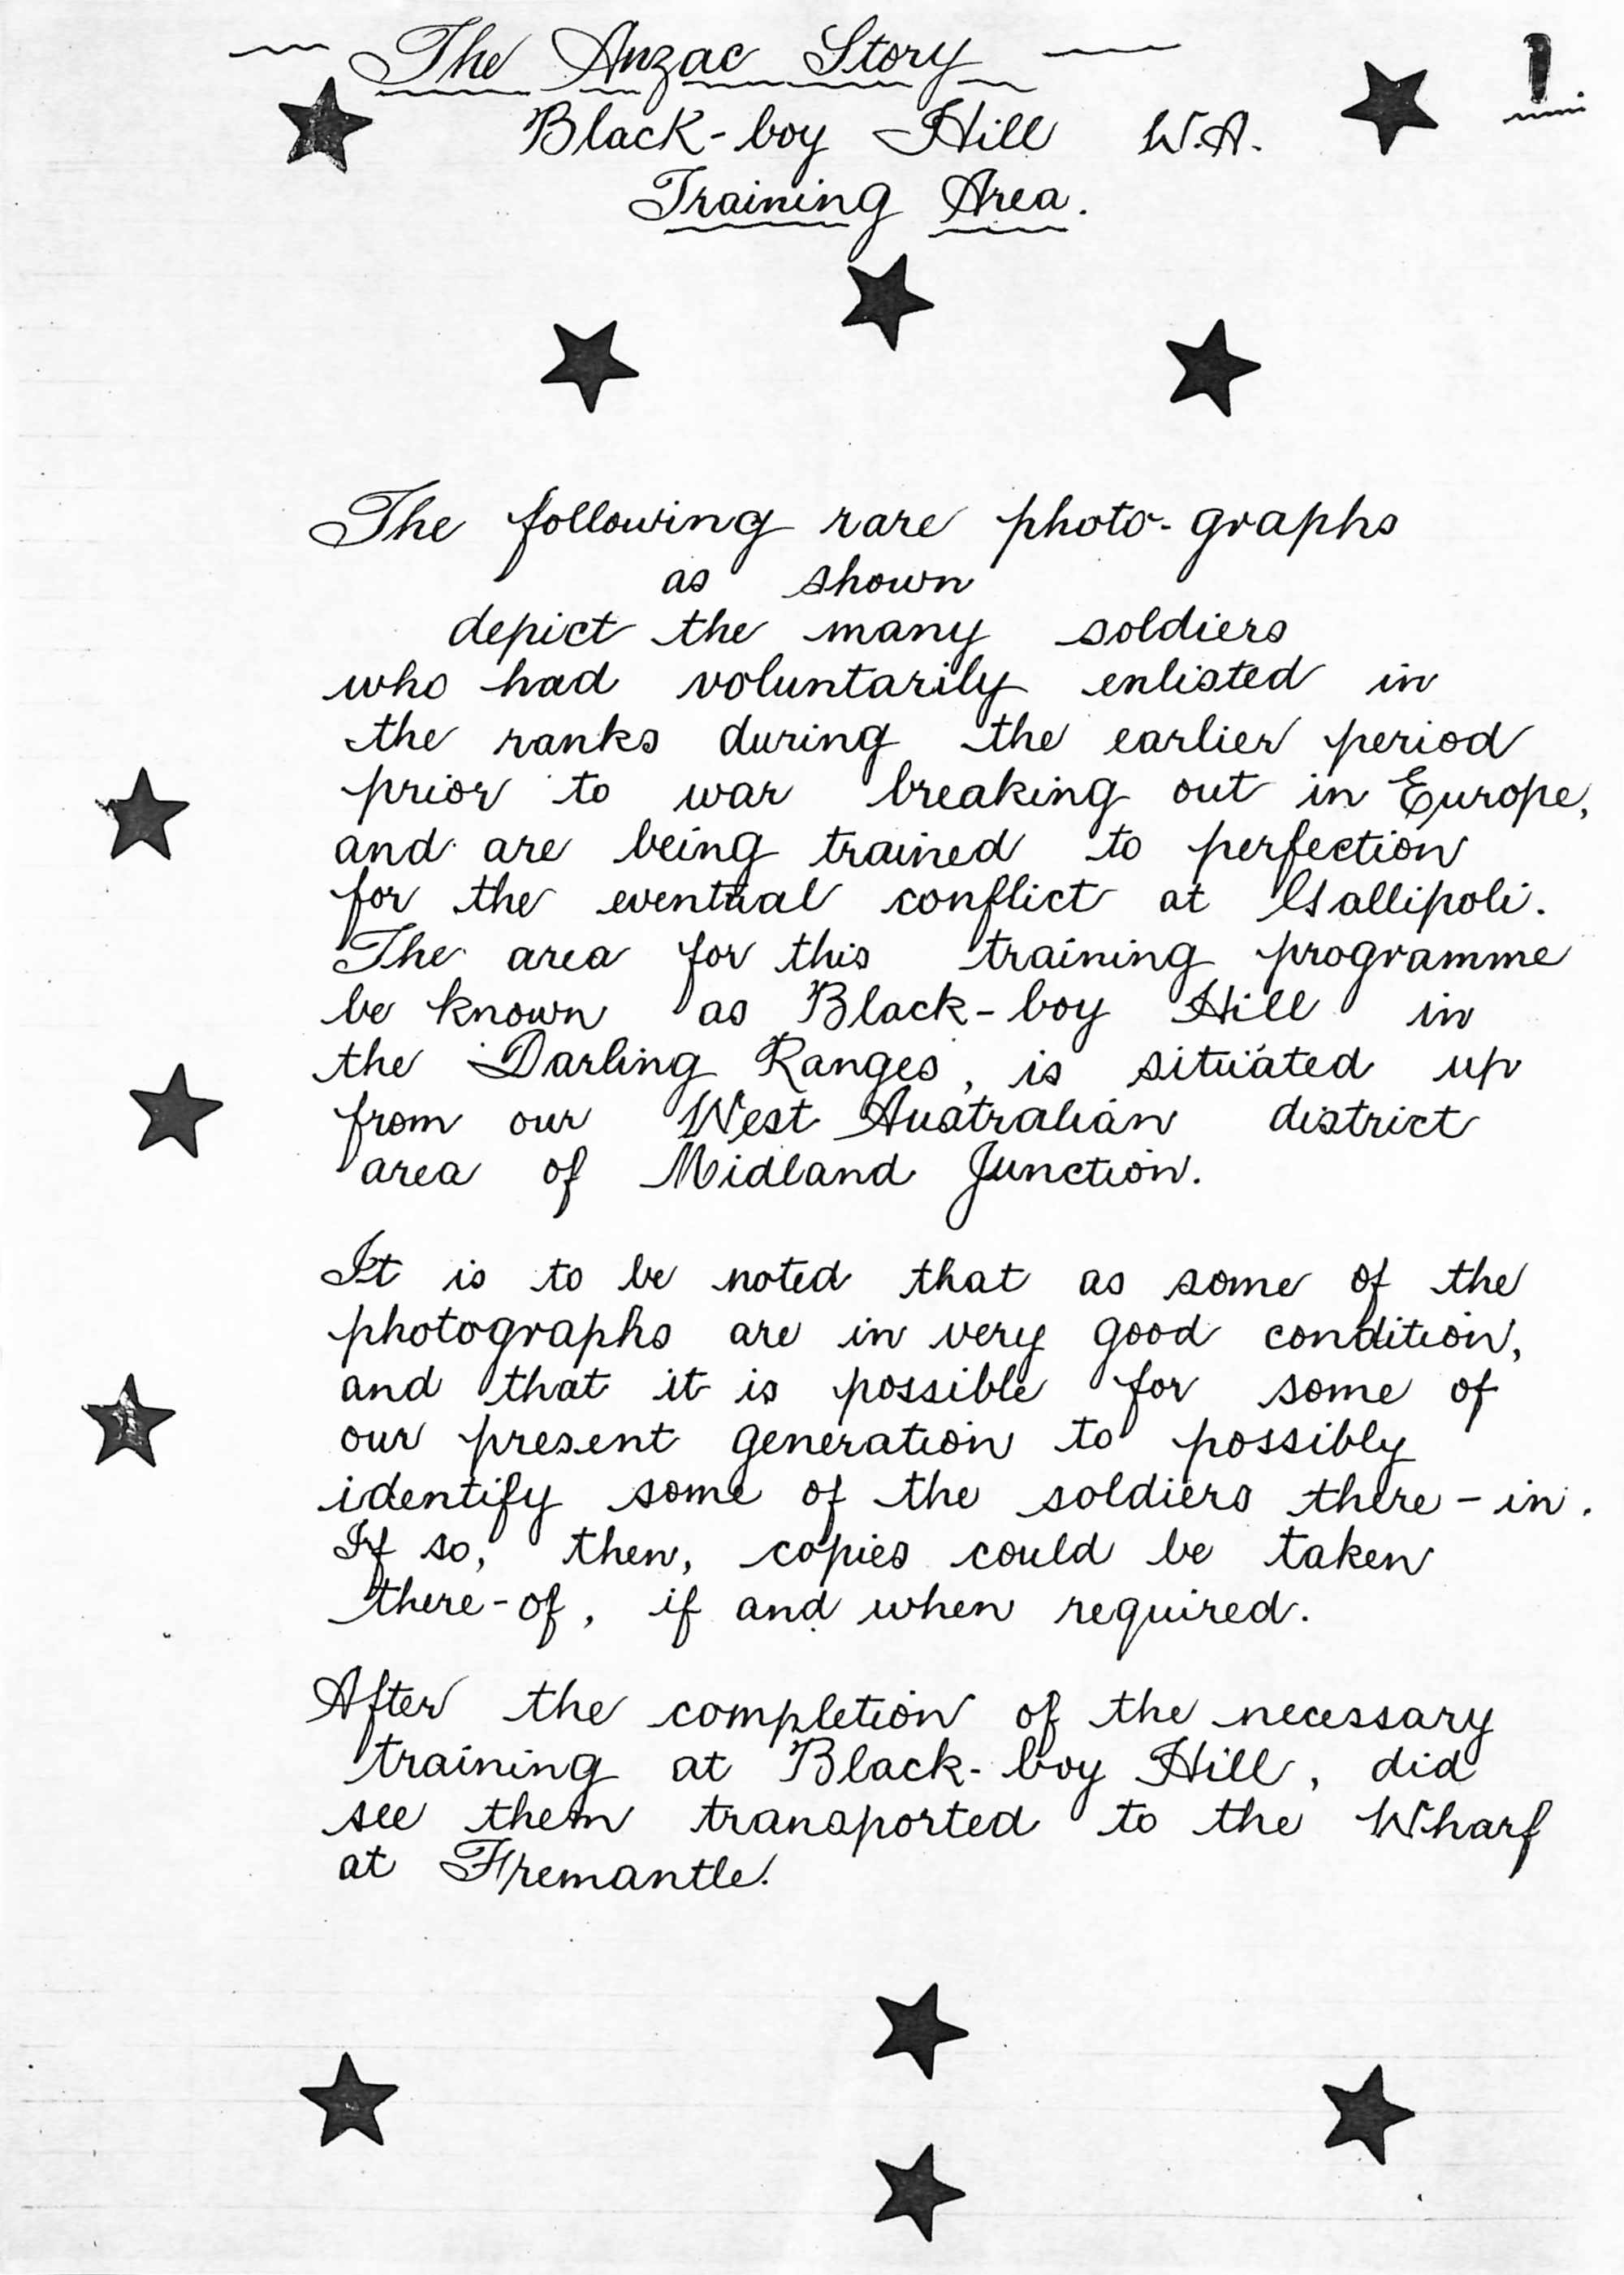 The Anzac Story
1.
Black-boy Hill W.A.
Training Area.
The following rare photo-graphs
as shown
depict the many soldiers
who had voluntarily enlisted in
the ranks during the earlier period
prior to war breaking out in Europe,
and are being trained to perfection
for the eventual conflict at Gallipoli.
The area for this training programme
be known as Black-boy Hill in
the Darling Ranges, is situated up
from our West Australian district
area of Midland Junction.
It is to be noted that as some of the
photographs are in very good condition,
and that it is possible for some of
our present generation to possibly
identify some of the soldiers there-in.
If so, then, copies could be taken
there-of, if and when required.
After the completion of the necessary
training at Black-boy Hill, did
see them transported to the Wharf
at Fremantle.